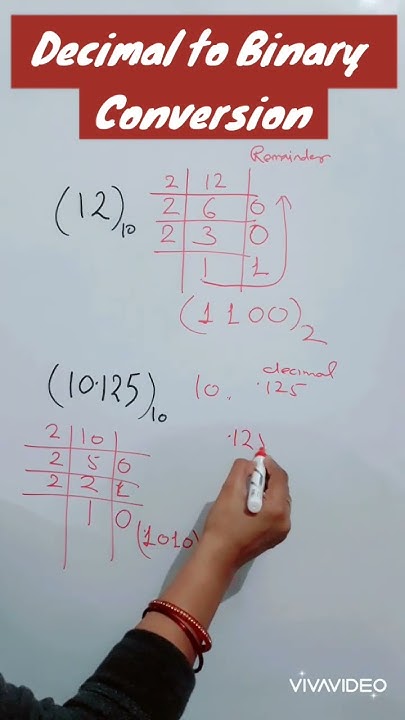 Decimal to Binary
Conversion
Reminder
(12)10
2 12
2 6 0
2 3 0
1 1
(1100)2
(10.125)10
10.
decimal
.125
2 10
2 5 0
2 2 1
1 0
(1010)
.12
VIVAVIDEO